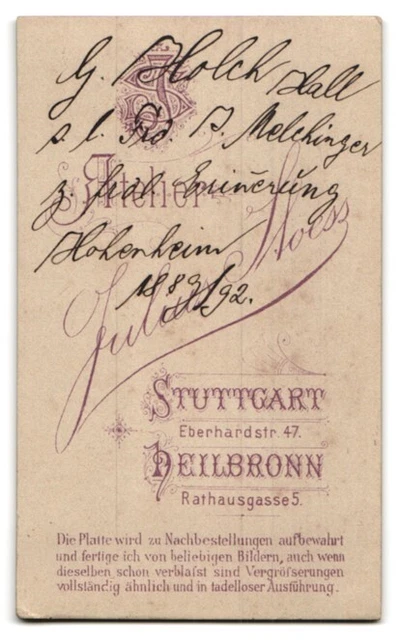 G. Holch Hall
s. l. Frd. P. Melchinger
Atelier
z. frdl. Erinerung
Hohenheim
1889/92.
Julius Stoess
STUTTGART
Eberhardstr. 47.
HEILBRONN
Rathausgasse 5.
Die Platte wird zu Nachbestellungen aufbewahrt
und fertige ich von beliebigen Bildern, auch wenn
dieselben schon verblaſst sind Vergröſserungen
vollständig ähnlich und in tadelloser Ausführung.